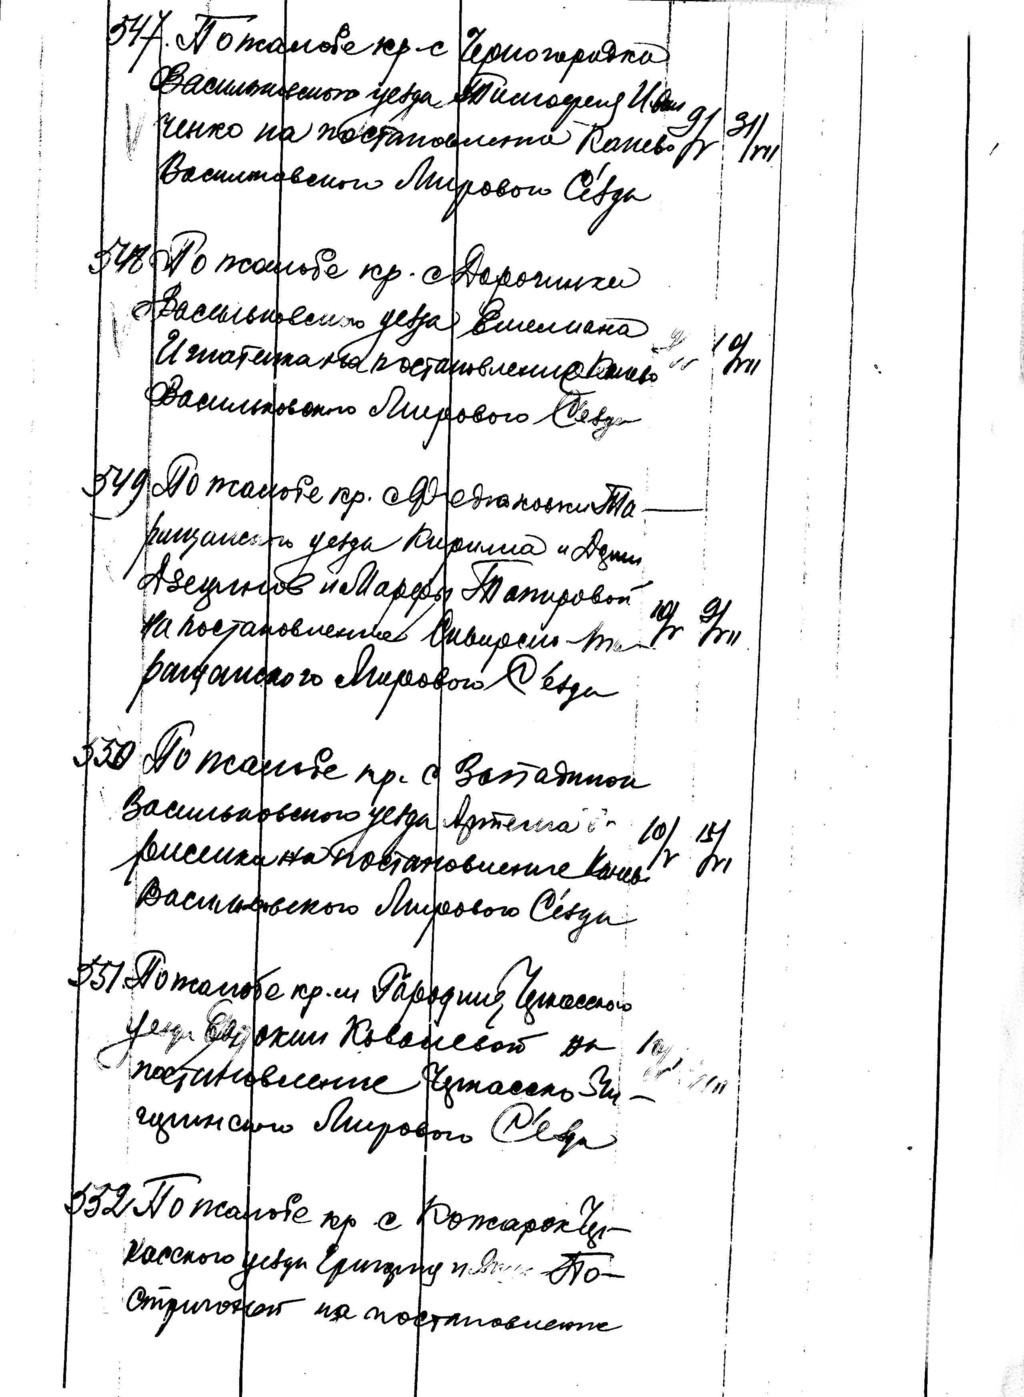 547. По жалобе кр. с Черногородки
Васильковского уезда Тимофея Иван
ченко на постановление Канево 9/V 31/VII
Васильковского Мирового Съезда
548 По жалобе кр. с Дорогинки
Васильковского уезда Емелиана
Игнатенка на постановление Канево 10/VII
Васильковского Мирового Съезда
549 По жалобе кр. с Федюковки Та-
ращанского уезда Кирилла и
и Марфы
на постановление Сквирско-Та- 10/V 9/VII
ращанского Мирового Съезда
550 По жалобе кр. с Западинки
Васильковского уезда Артема Бо- 10/V 15/VI
рисенка на постановление Канев
Васильковского Мирового Съезда
551. По жалобе кр. м Городища Черкасского
уезда Евдокии Ковалевой на
постановление Черкасско-Чи-
гиринского Мирового Съезда
552 По жалобе кр с Кожарок Чер-
касского уезда Григория и По-
стригоней на постановление